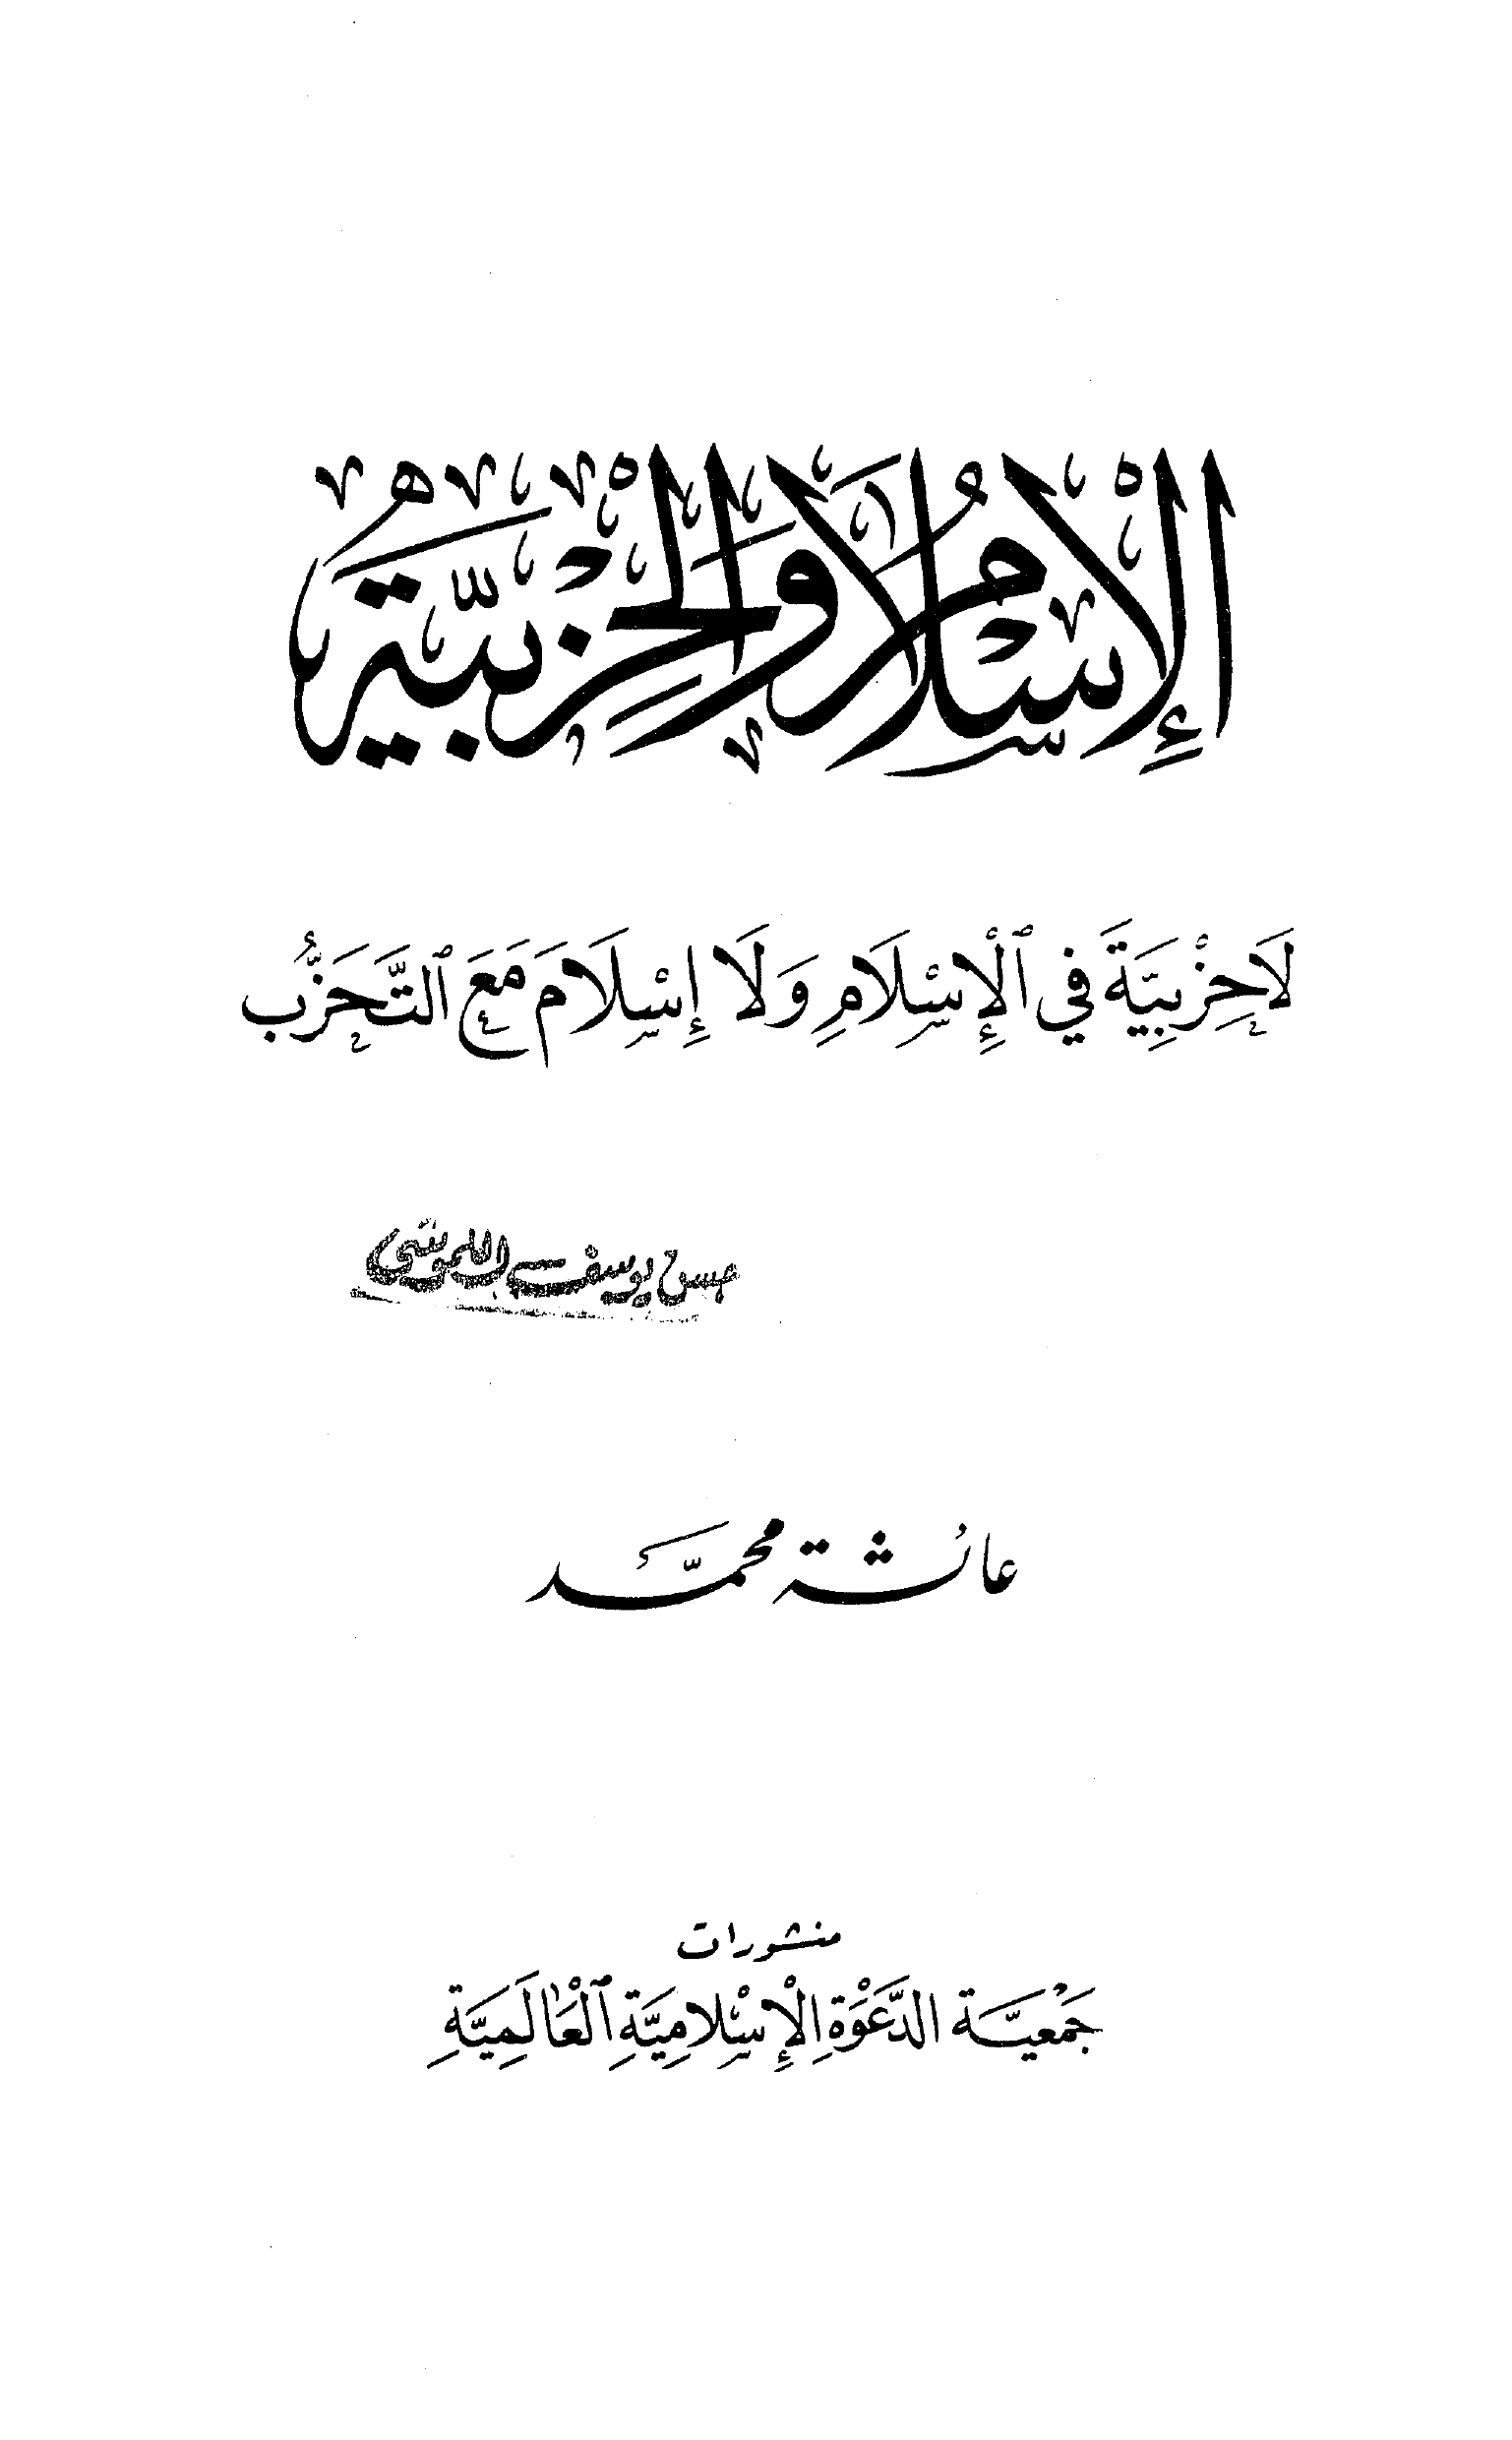 الإسلام والحزبية
لَا حِزْبِيَّةَ فِي ٱلْإِسْلَامِ وَلَا إِسْلَامَ مَعَ ٱلتَّحَزُّبِ
حسن يوسف
عائشة محمَّد
منشورات
جَمْعِيَّة الدَّعْوَةِ الْإِسْلامِيَّةِ ٱلْعَالَمِيَّةِ